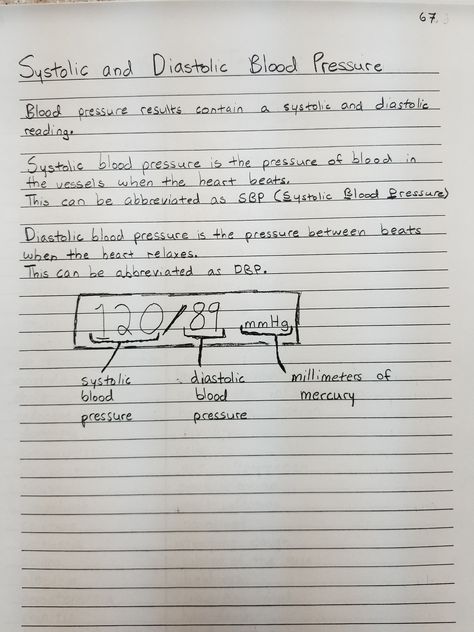 67
Systolic and Diastolic Blood Pressure
Blood pressure results contain a systolic and diastolic
reading.
Systolic blood pressure is the pressure of blood in
the vessels when the heart beats.
This can be abbreviated as SBP (Systolic Blood Pressure)
Diastolic blood pressure is the pressure between beats
when the heart relaxes.
This can be abbreviated as DBP.
120/89 mmHg
systolic blood pressure
diastolic blood pressure
millimeters of mercury